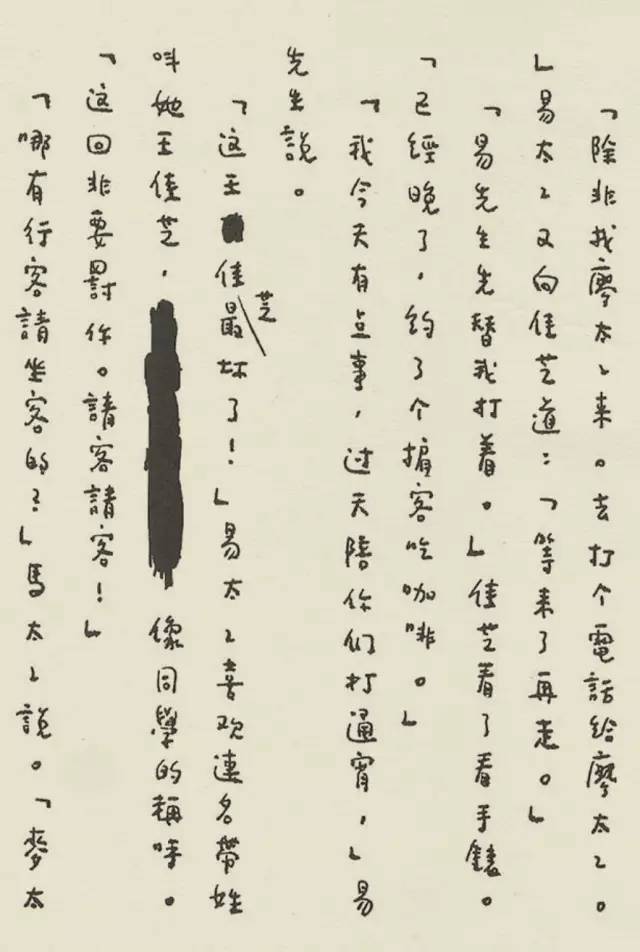 「除非找廖太〻来。去打个電話给廖太〻。
」易太〻又向佳芝道：「等来了再走。」
「易先生先替我打着。」佳芝看了看手錶。
「已經晚了，约了个掮客吃咖啡。」
「我今天有点事，过天陪你们打通宵，」易
先生說。
「这王佳芝最坏了！」易太〻喜欢連名带姓
叫她王佳芝，像同學的稱呼。
「这回非要罸你。請客請客！」
「哪有行客請坐客的？」馬太〻說。「麥太